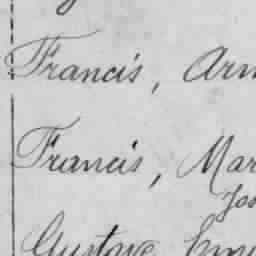 Francis, Arn
Francis, Mar
Jos
Gustave Emi